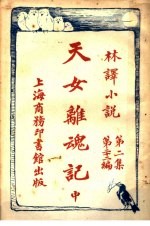 林譯小說
第二集
天女離魂記
中
上海商務印書館出版